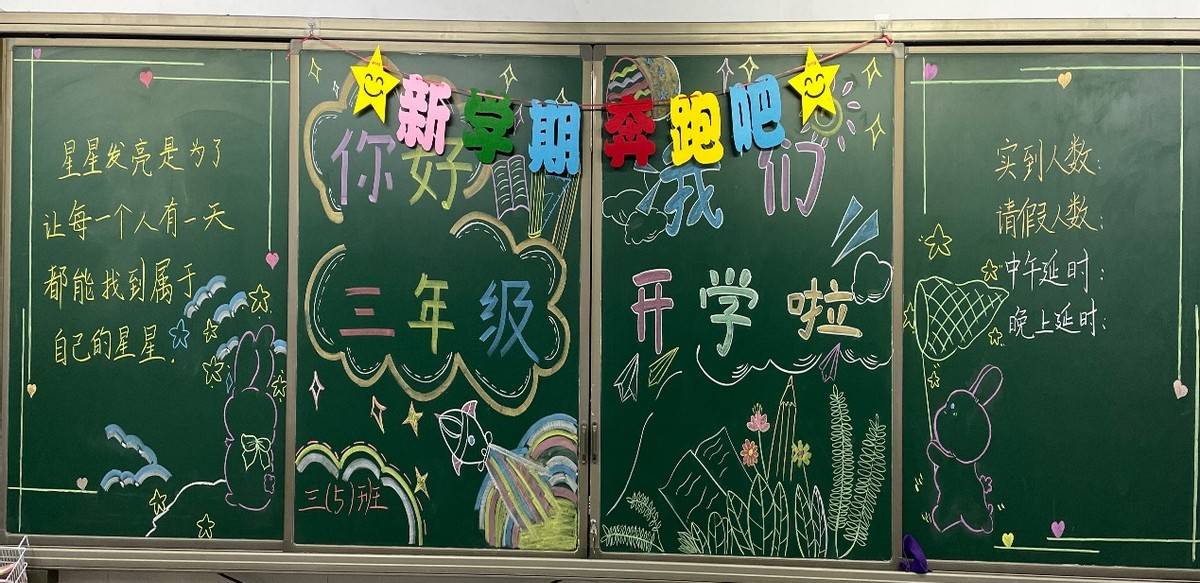 星星发亮是为了
让每一个人有一天
都能找到属于
自己的星星.
新学期奔跑吧
你好
三年级
三(5)班
我们
开学啦
实到人数:
请假人数:
中午延时:
晚上延时: